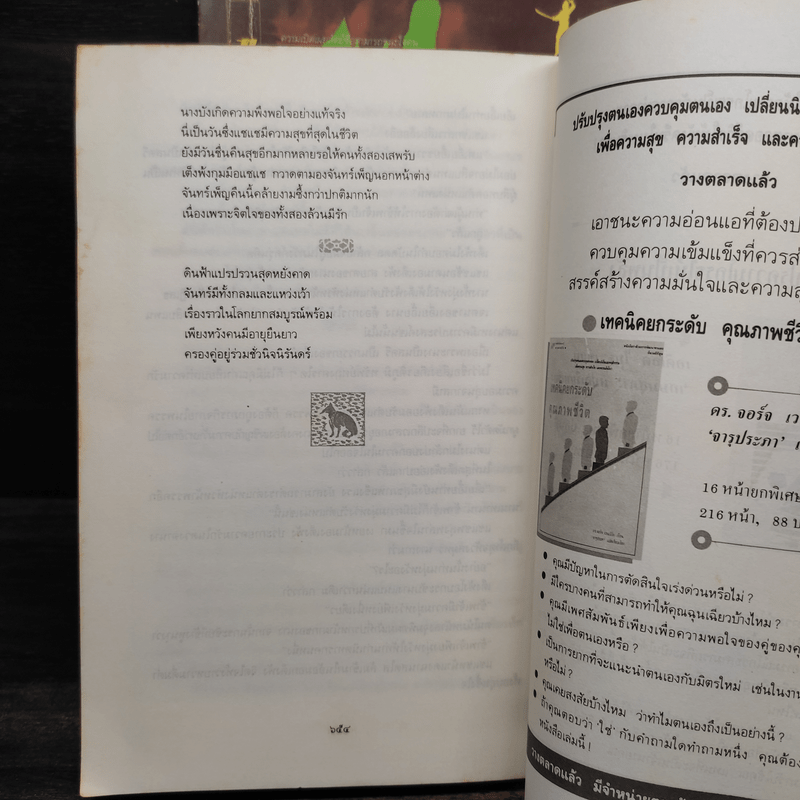 นางบังเกิดความพึงพอใจอย่างแท้จริง
นี่เป็นวันซึ่งแซแซมีความสุขที่สุดในชีวิต
ยังมีวันชื่นคืนสุขอีกมากหลายรอให้คนทั้งสองเสพรับ
เต็งพ้งกุมมือแซแซ กวาดตามองจันทร์เพ็ญนอกหน้าต่าง
จันทร์เพ็ญคืนนี้คล้ายงามซึ้งกว่าปกติมากนัก
เนื่องเพราะจิตใจของทั้งสองล้วนมีรัก
ดินฟ้าแปรปรวนสุดหยั่งคาด
จันทร์มีทั้งกลมและแหว่งเว้า
เรื่องราวในโลกยากสมบูรณ์พร้อม
เพียงหวังคนมีอายุยืนยาว
ครองคู่อยู่ร่วมชั่วนิจนิรันดร์
๖๕๔
ปรับปรุงตนเองควบคุมตนเอง เปลี่ยนนิ
เพื่อความสุข ความสำเร็จ และค
วางตลาดแล้ว
เอาชนะความอ่อนแอที่ต้องป
ควบคุมความเข้มแข็งที่ควรส
สรรค์สร้างความมั่นใจและความส
เทคนิคยกระดับ คุณภาพชีวิ
เทคนิคยกระดับ
คุณภาพชีวิต
ดร. จอร์จ เว
'จารุประภา' แ
16 หน้ายกพิเศษ
216 หน้า, 88 บ
คุณมีปัญหาในการตัดสินใจเร่งด่วนหรือไม่ ?
มีใครบางคนที่สามารถทำให้คุณฉุนเฉียวบ้างไหม ?
คุณมีเพศสัมพันธ์เพียงเพื่อความพอใจของคู่ของคุ
ไม่ใช่เพื่อตนเองหรือ ?
เป็นการยากที่จะแนะนำตนเองกับมิตรใหม่ เช่นในงาน
หรือไม่ ?
คุณเคยสงสัยบ้างไหม ว่าทำไมตนเองถึงเป็นอย่างนี้ ?
ถ้าคุณตอบว่า 'ใช่' กับคำถามใดคำถามหนึ่ง คุณต้อง
หนังสือเล่มนี้ !
วางตลาดแล้ว มีจำหน่าย